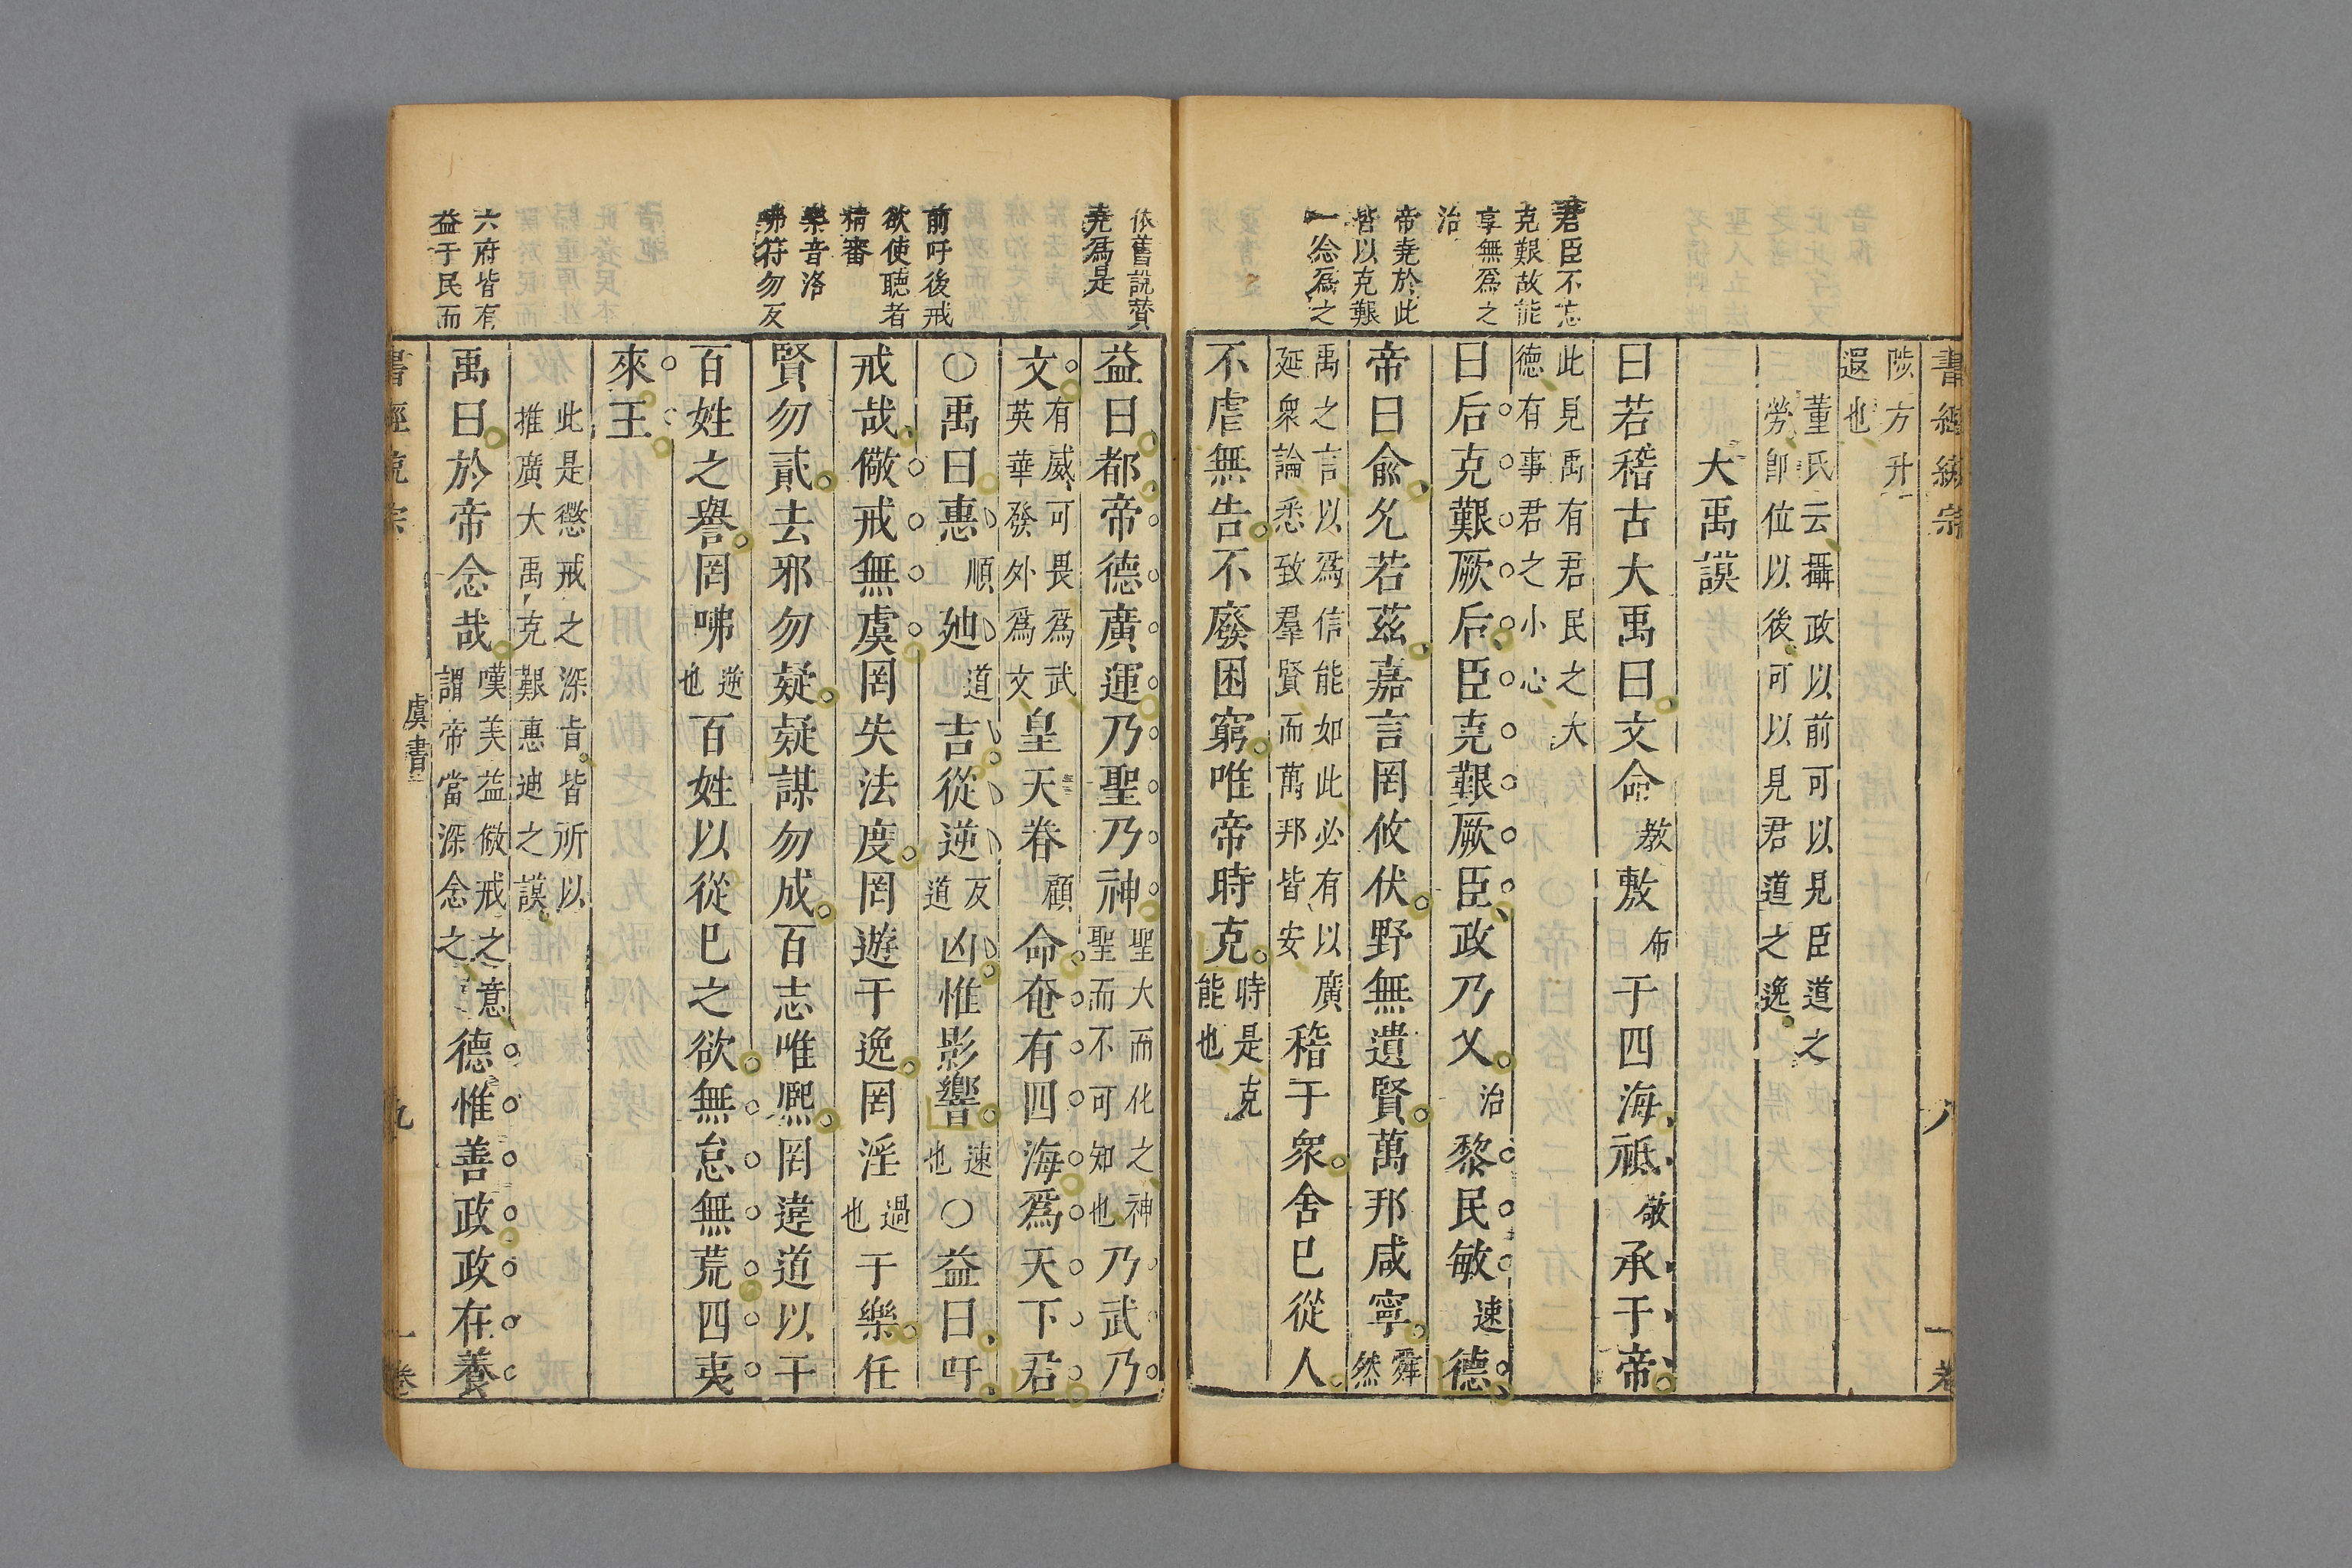 君臣不忘
克艱故能
享無爲之
治
帝堯於此
皆以克艱
一念爲之
書經繹宗 八 一卷
陟方升
遐也
董氏云攝政以前可以見臣道之
勞卽位以後可以見君道之逸
大禹謨
曰若稽古大禹曰文命敎敷布于四海祗敬承于帝
此見禹有君民之大
德有事君之小心
曰后克艱厥后臣克艱厥臣政乃乂治黎民敏速德
帝曰俞允若茲嘉言罔攸伏野無遺賢萬邦咸寧舜然
禹之言以爲信能如此必有以廣
延衆論悉致羣賢而萬邦皆安
稽于衆舍已從人
不虐無告不廢困窮唯帝時克時是克能也
依舊說贊
堯爲是
前吁後戒
欲使聽者
精審
樂音洛
咈符勿反
六府皆有
益于民而
益曰都帝德廣運乃聖乃神聖大而化之神聖而不可知也乃武乃
文有威可畏爲武英華發外爲文皇天眷顧命奄有四海爲天下君
○禹曰惠順廸道吉從逆反道凶惟影響速也○益曰吁
戒哉儆戒無虞罔失法度罔遊于逸罔淫過也于樂任
賢勿貳去邪勿疑疑謀勿成百志唯熈罔違道以干
百姓之譽罔咈逆也百姓以從已之欲無怠無荒四夷
來王
此是懲戒之深旨皆所以
推廣大禹克艱惠廸之謨
禹曰於帝念哉嘆美益儆戒之意謂帝當深念之德惟善政政在養
虞書 九 一卷